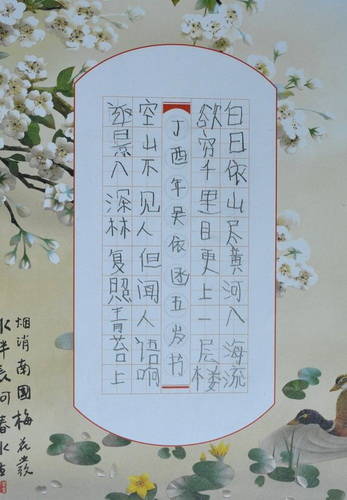 白日依山尽黄河入海流
欲穷千里目更上一层楼
丁酉年吴依函五岁书
空山不见人但闻人语响
返景入深林复照青苔上
烟消南國梅花
水半長河春水